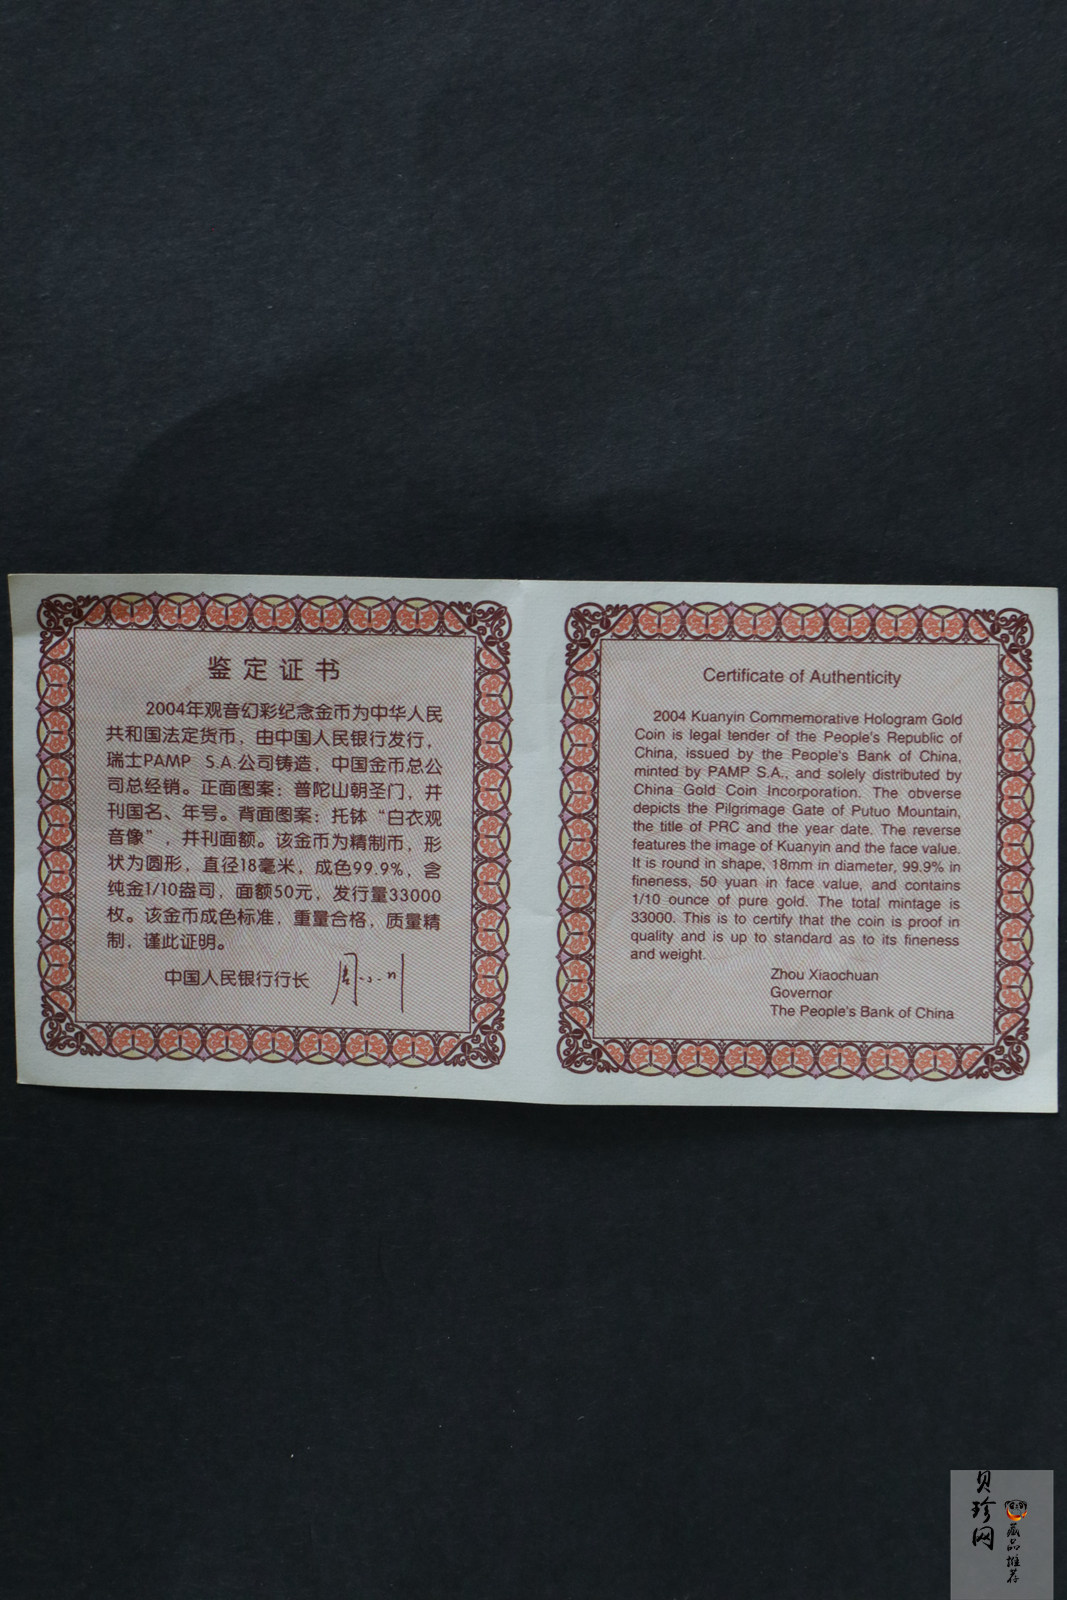 鉴定证书
2004年观音幻彩纪念金币为中华人民
共和国法定货币，由中国人民银行发行，
瑞士PAMP S.A.公司铸造，中国金币总公
司总经销。正面图案：普陀山朝圣门，并
刊国名、年号。背面图案：托钵“白衣观
音像”，并刊面额。该金币为精制币，形
状为圆形，直径18毫米，成色99.9%，含
纯金1/10盎司，面额50元，发行量33000
枚。该金币成色标准，重量合格，质量精
制，谨此证明。
中国人民银行行长 周小川
Certificate of Authenticity
2004 Kuanyin Commemorative Hologram Gold
Coin is legal tender of the People's Republic of
China, issued by the People's Bank of China,
minted by PAMP S.A., and solely distributed by
China Gold Coin Incorporation. The obverse
depicts the Pilgrimage Gate of Putuo Mountain,
the title of PRC and the year date. The reverse
features the image of Kuanyin and the face value.
It is round in shape, 18mm in diameter, 99.9% in
fineness, 50 yuan in face value, and contains
1/10 ounce of pure gold. The total mintage is
33000. This is to certify that the coin is proof in
quality and is up to standard as to its fineness
and weight.
Zhou Xiaochuan
Governor
The People's Bank of China
贝珍网
藏品推荐